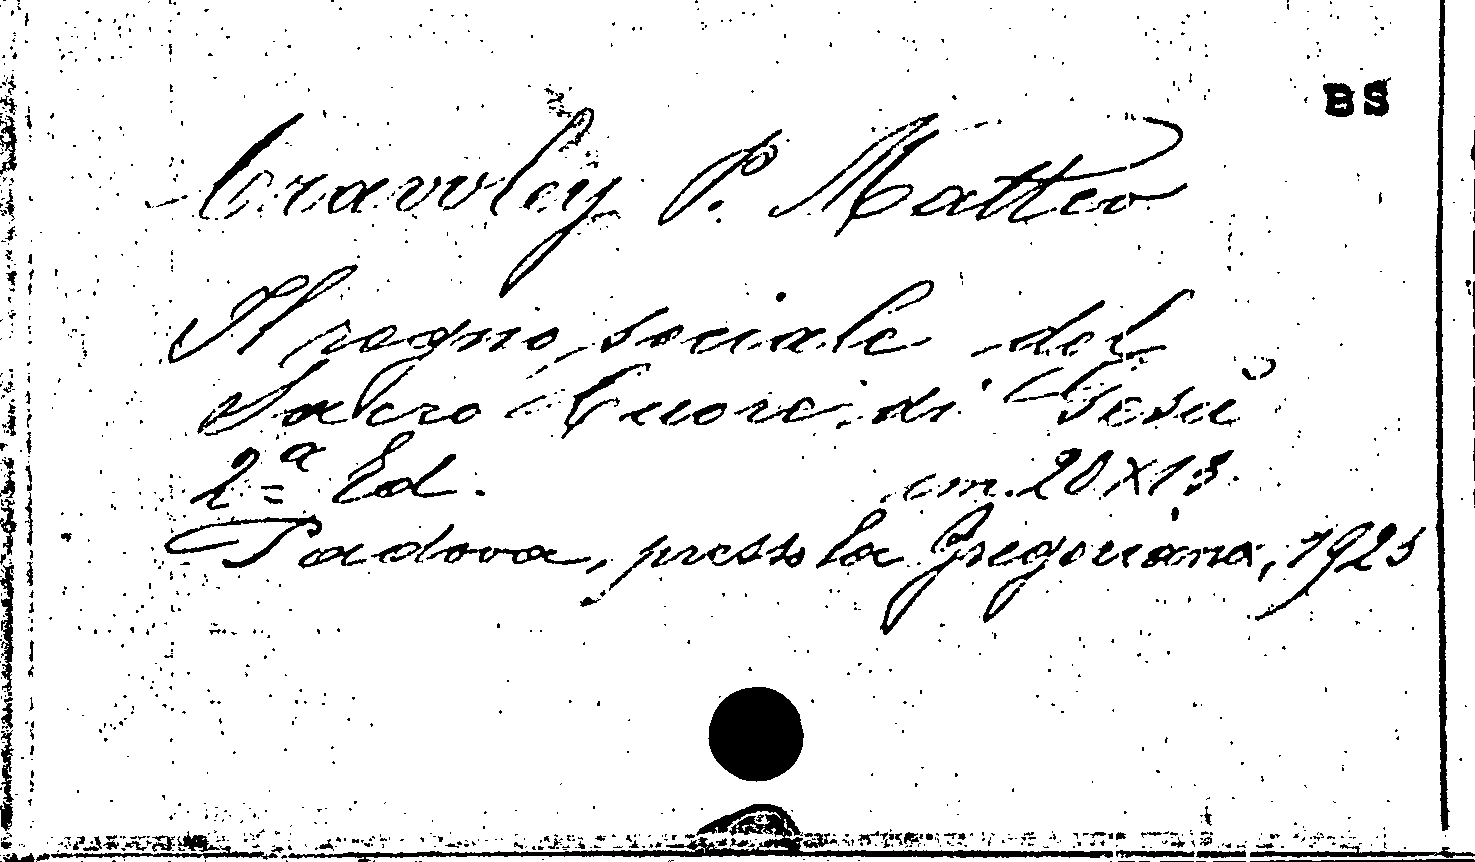 BS
Cravvley P. Matteo
Il regno sociale del
Sacro Cuore di Gesù
2ª Ed. cm. 20X13
Padova, presso la Gregoriana, 1925